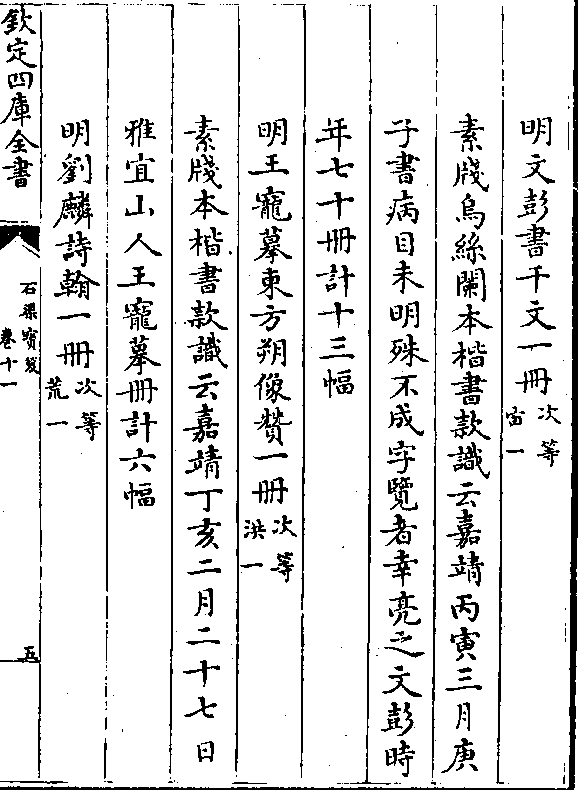 明文彭書千文一冊次等宙一
素牋烏絲闌本楷書款識云嘉靖丙寅三月庚
子書病目未明殊不成字覽者幸亮之文彭時
年七十冊計十三幅
明王寵摹東方朔像贊一冊次等洪一
素牋本楷書款識云嘉靖丁亥二月二十七日
雅宜山人王寵摹冊計六幅
明劉麟詩翰一冊次等荒一
欽定四庫全書
石渠寶笈
卷十一
五